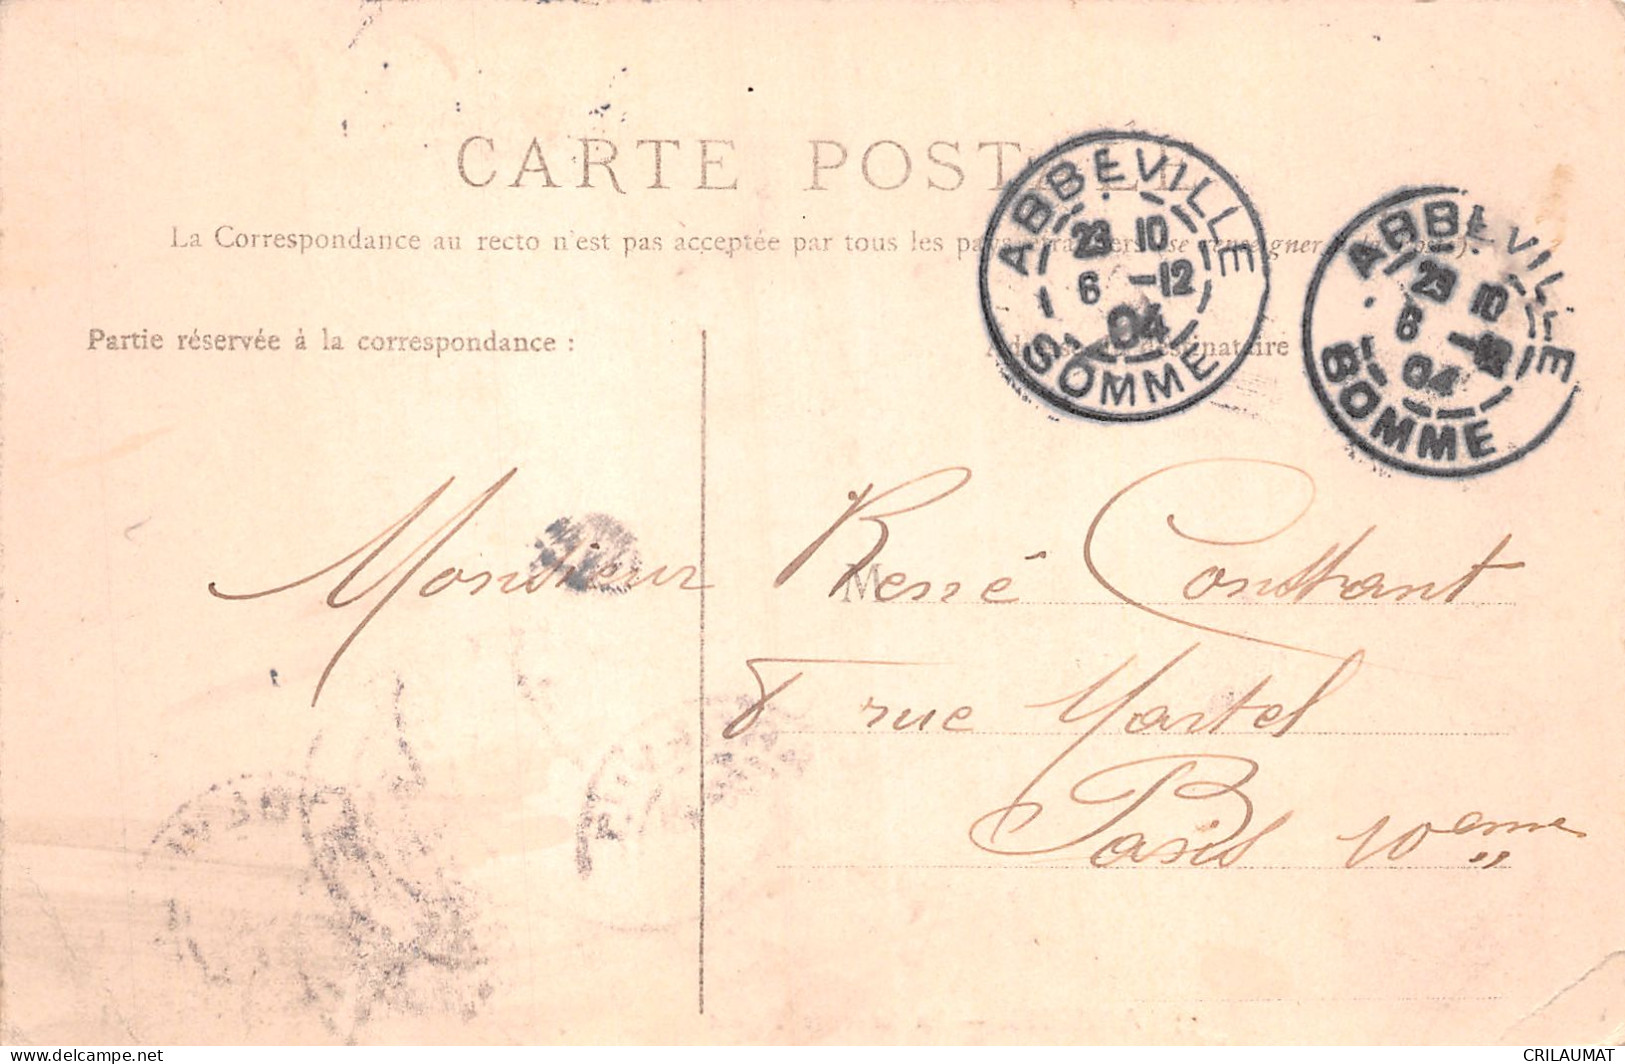 CARTE POSTALE
La Correspondance au recto n'est pas acceptée par tous les pays étrangers (se renseigner à la Poste).
Partie réservée à la correspondance :
Adresse du destinataire
ABBEVILLE
23 10
6 -12
04
SOMME
ABBEVILLE
23 10
6 -12
04
SOMME
Monsieur René Constant
M
8 rue Martel
Paris 10eme
delcampe.net
CRILAUMAT